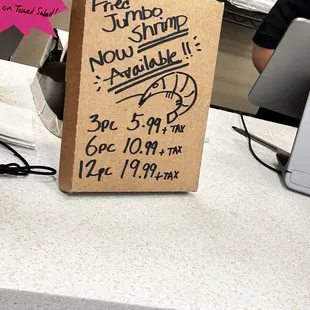 on Tossed Salad!!
Fried
Jumbo
Shrimp
Now
Available!!
3pc 5.99 + TAX
6pc 10.99 + TAX
12pc 19.99 + TAX